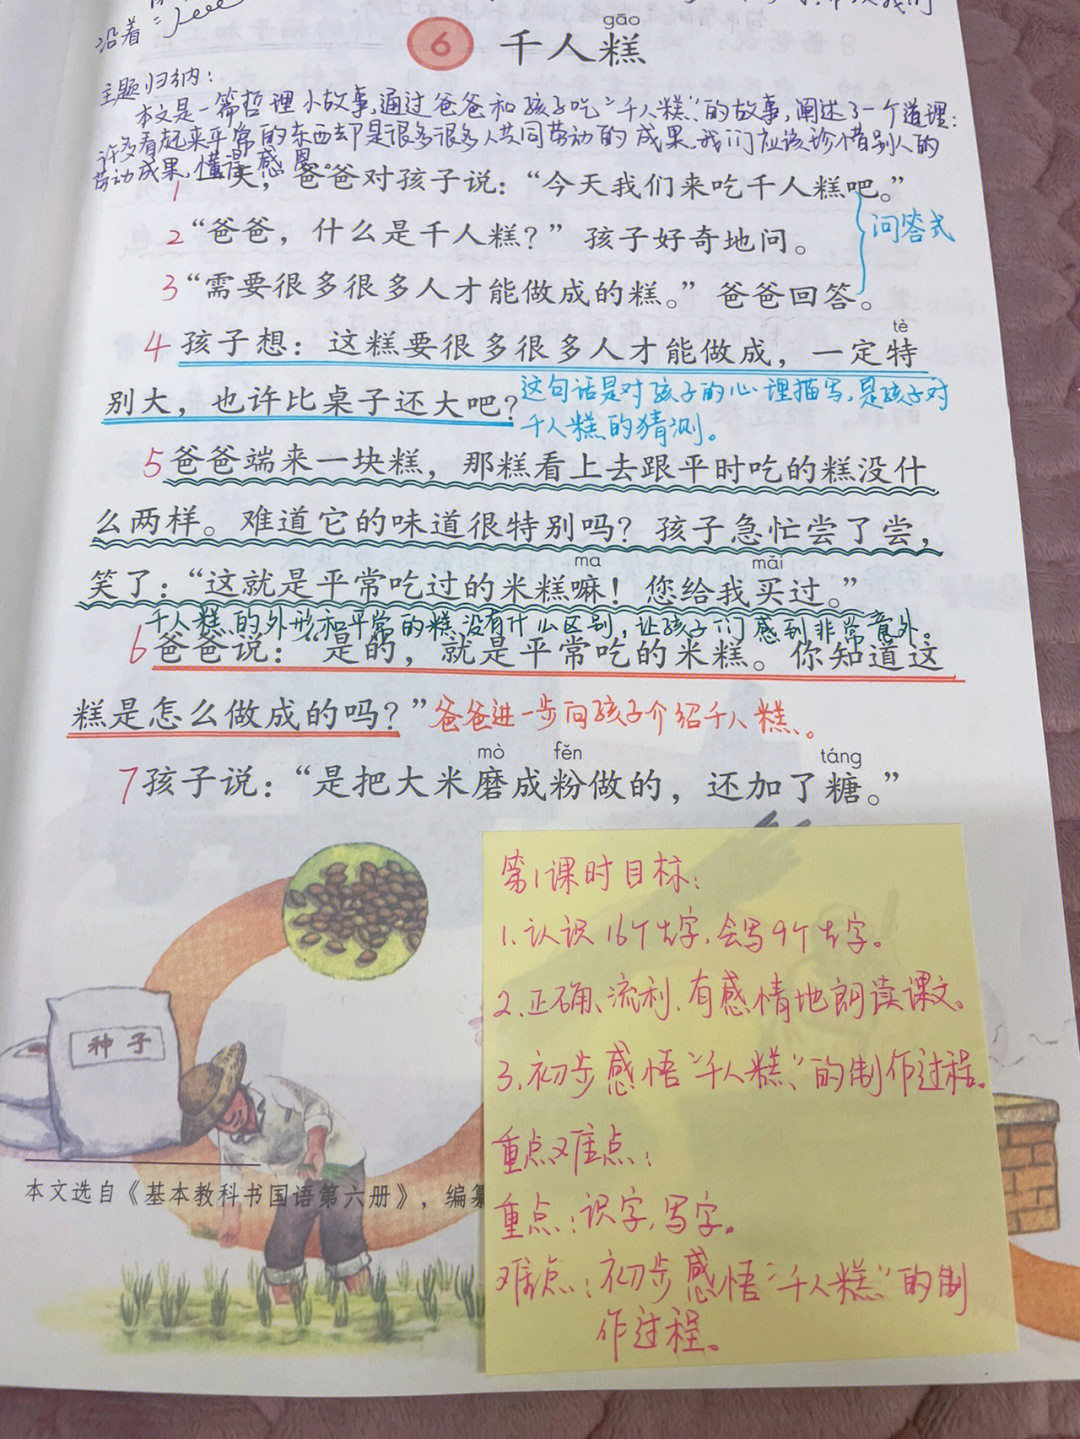 沿着
gāo
6 千人糕
主题归纳:
本文是一篇哲理小故事,通过爸爸和孩子吃“千人糕”的故事,阐述了一个道理:
许多看起来平常的东西却是很多很多人共同劳动的成果.我们应该珍惜别人的
劳动成果,懂得感恩。
1 一天,爸爸对孩子说:“今天我们来吃千人糕吧。”
2 “爸爸,什么是千人糕?”孩子好奇地问。
问答式
3 “需要很多很多人才能做成的糕。”爸爸回答。
tè
4 孩子想:这糕要很多很多人才能做成,一定特
别大,也许比桌子还大吧?
这句话是对孩子的心理描写,是孩子对
千人糕的猜测。
5 爸爸端来一块糕,那糕看上去跟平时吃的糕没什
么两样。难道它的味道很特别吗?孩子急忙尝了尝,
ma mǎi
笑了:“这就是平常吃过的米糕嘛!您给我买过。”
千人糕的外形和平常的糕没有什么区别,让孩子们感到非常意外。
6 爸爸说:“是的,就是平常吃的米糕。你知道这
糕是怎么做成的吗?”
爸爸进一步向孩子介绍千人糕。
mò fěn táng
7 孩子说:“是把大米磨成粉做的,还加了糖。”
种子
本文选自《基本教科书国语第六册》,编纂
第1课时目标:
1.认识16个生字,会写9个生字。
2.正确、流利、有感情地朗读课文。
3.初步感悟“千人糕”的制作过程。
重点难点:
重点:识字,写字。
难点:初步感悟“千人糕”的制
作过程。